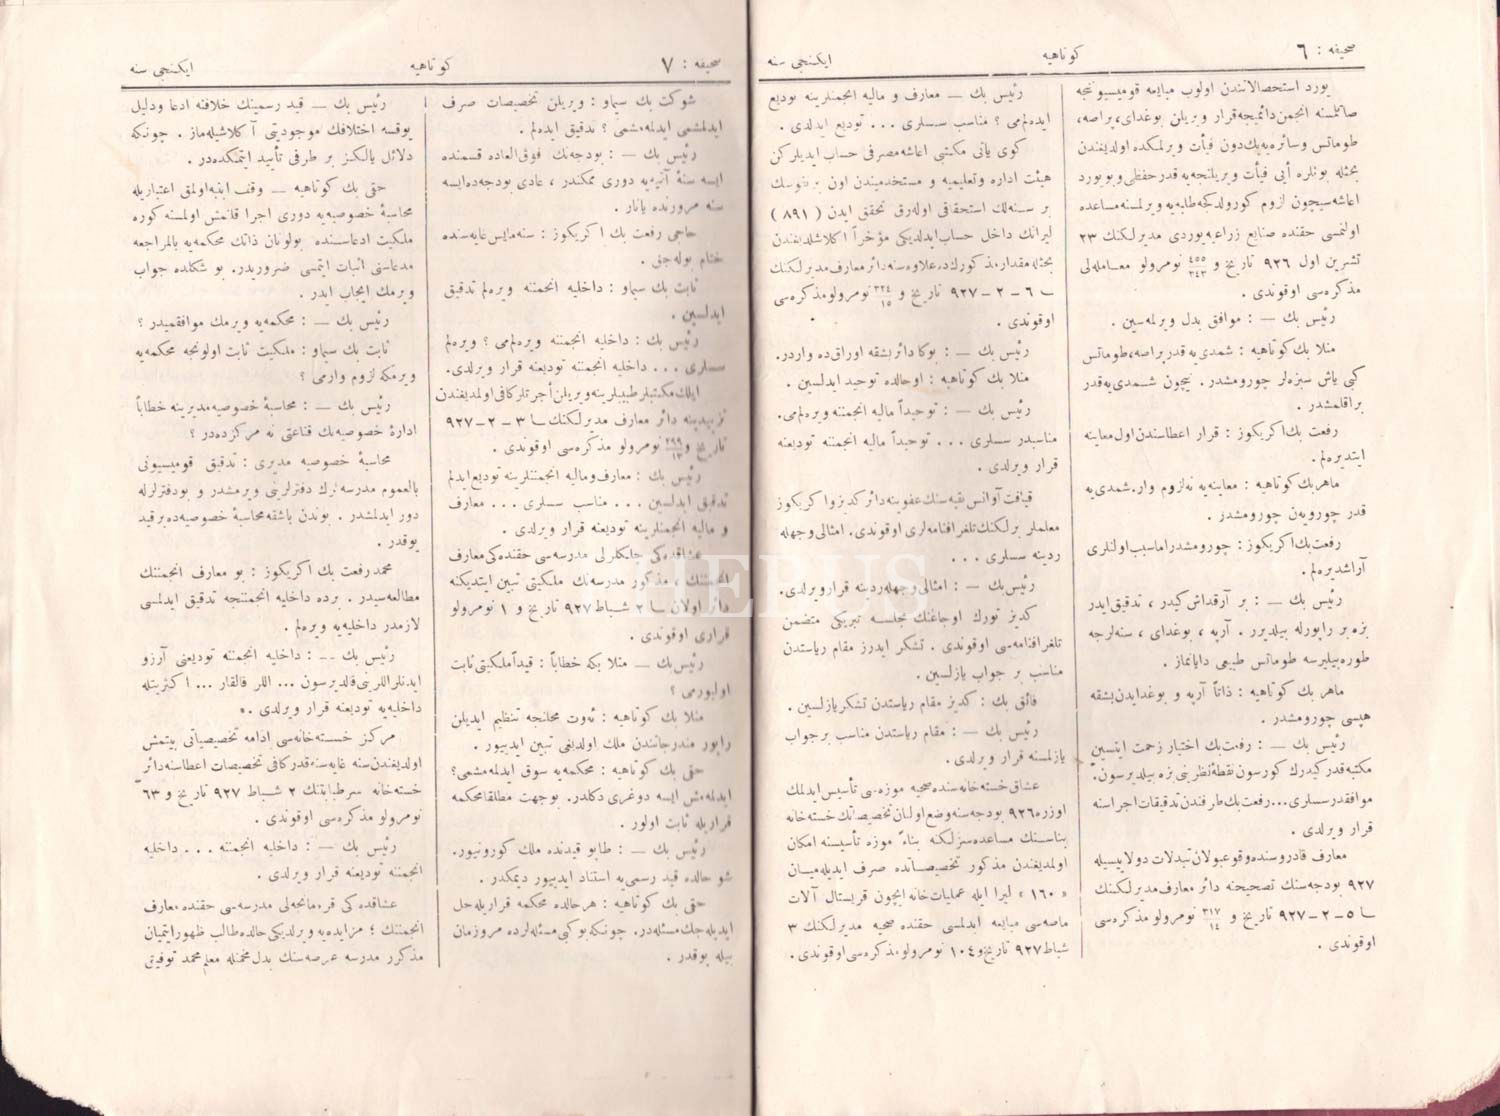 صحیفه : ٦ كوتاهیه ایكنجی سنه
یورد استحصالاتندن اولوب مبایعه قومیسیونجه
صاتلمسنه انجمن دائمیجه قرار ویریلن بوغدای، پراصه،
طوماتس وسائره یه پك دون فیأت ویرلمكده اولدیغندن
بحثله بونلره أیی فیأت ویریلنجه یه قدر حفظی و بو یورد
اعاشه سیچون لزوم كورولدكجه طلبه یه ویرلمسنه مساعده
اولنمسی حقنده صنایع زراعیه یوردی مدیرلكنك ٢٣
تشرین اول ٩٢٦ تاریخ و ٤٥٥/٣٤٣ نومرولو معامله لی
مذكره سی اوقوندی .
رئیس بك — : موافق بدل ویرلمه سین .
منلا بك كوتاهیه : شمدی یه قدر پراصه، طوماتس
كبی یاش سبزه لر چورومشدر . نیچون شمدی یه قدر
براقلمشدر .
رفعت بك اكریكوز : قرار اعطاسندن اول معاینه
ایتدیره لم .
ماهر بك كوتاهیه : معاینه یه نه لزوم وار. شمدی یه
قدر چورویه ن چورومشدر .
رفعت بك اكریكوز : چورومشدر اما سبب اولنلری
آراشدیره لم .
رئیس بك — : بر آرقداش كیدر ، تدقیق ایدر
بزه بر راپورله بیلدیرر . آرپه ، بوغدای ، سنه لرجه
طوره بیلیرسه طوماتس طبیعی دایانماز .
ماهر بك كوتاهیه : ذاتاً آرپه و بوغدایدن بشقه
هپسی چورومشدر .
رئیس بك — : رفعت بك اختیار زحمت ایتسین
مكتبه قدر كیدرك كورسون نقطۀ نظرینی بزه بیلدیرسون.
موافقدر سسلری... رفعت بك طرفندن تدقیقات اجراسنه
قرار ویرلدی .
معارف قادروسنده وقوعبولان تبدلات دولاییسیله
٩٢٧ بودجه سنك تصحیحنه دائر معارف مدیرلكنك
٥ــ٢ــ٩٢٧ تاریخ و ٣١٧/١٤ نومرولو مذكره سی
اوقوندی .
رئیس بك — معارف و مالیه انجمنلرینه تودیع
ایده لم می ؟ مناسب سسلری ... تودیع ایدلدی .
كوی یاتی مكتبی اعاشه مصرفی حساب ایدیلركن
هیئت اداره وتعلیمیه و مستخدمیندن اون بر نفوسك
بر سنه لك استحقاقی اوله رق تحقق ایدن ( ٨٩١ )
لیرانك داخل حساب ایدلدیكی مؤخراً اكلاشلدیغندن
بحثله مقدار مذكورك ده علاوه سنه دائر معارف مدیرلكنك
٦ــ٢ــ٩٢٧ تاریخ و ٣٢٤/١٥ نومرولو مذكره سی
اوقوندی .
رئیس بك — : بوكا دائر بشقه اوراق ده واردر.
منلا بك كوتاهیه : اوحالده توحید ایدلسین .
رئیس بك — : توحیداً مالیه انجمننه ویره لم می.
مناسبدر سسلری ... توحیداً مالیه انجمننه تودیعنه
قرار ویرلدی .
قیافت آوانس بقیه سنك عفوینه دائر كدیز و اكریكوز
معلملر برلكنك تلغرافنامه لری اوقوندی. امثالی وجهله
ردینه سسلری ...
رئیس بك — : امثالی وجهله ردینه قرار ویرلدی.
كدیز تورك اوجاغنك مجلسه تبریكی متضمن
تلغرافنامه سی اوقوندی . تشكر ایدرز مقام ریاستدن
مناسب بر جواب یازلسین .
فائق بك : كدیز مقام ریاستدن تشكر یازلسین .
رئیس بك — : مقام ریاستدن مناسب بر جواب
یازلمسنه قرار ویرلدی .
عشاق خسته خانه سنده صحیه موزه سی تأسیس ایدلمك
اوزره ٩٢٦ بودجه سنه وضع اولنان تخصیصاتك خسته خانه
بناسنك مساعده سزلكنه بناءً موزه تأسیسنه امكان
اولمدیغندن مذكور تخصیصاتده صرف ایدیله میان
« ١٦٠ » لیرا ایله عملیات خانه ایچون قریستال آلات
ماصه سی مبایعه ایدلمسی حقنده صحیه مدیرلكنك ٣
شباط ٩٢٧ تاریخ و ١٠٤ نومرولو مذكره سی اوقوندی .
صحیفه : ٧ كوتاهیه ایكنجی سنه
شوكت بك سیماو : ویریلن تخصیصات صرف
ایدلمشمی ایدلمه مشمی ؟ تدقیق ایده لم .
رئیس بك — : بودجه نك فوق العاده قسمنده
ایسه سنۀ آتیه یه دوری ممكندر ، عادی بودجه ده ایسه
سنه مرورنده یانار .
حاجی رفعت بك اكریكوز : سنه مایس غایه سنده
ختام بوله جق .
ثابت بك سیماو : داخلیه انجمننه ویره لم تدقیق
ایدلسین .
رئیس بك : داخلیه انجمننه ویره لم می ؟ ویره لم
سسلری ... داخلیه انجمننه تودیعنه قرار ویرلدی.
ایلك مكتبلر طبیبلرینه ویریلن أجرتلر كافی اولمدیغندن
تزییدینه دائر معارف مدیرلكنك ٣ــ٢ــ٩٢٧
تاریخ و ٢٩٩/١٣ نومرولو مذكره سی اوقوندی .
رئیس بك : معارف و مالیه انجمنلرینه تودیع ایدلم
تدقیق ایدلسین ... مناسب سسلری ... معارف
و مالیه انجمنلرینه تودیعنه قرار ویرلدی .
عشاقده كی مدرسه سی حقنده كی معارف
انجمننك ، مذكور مدرسه نك ملكیتی تبین ایتدیكنه
دائر اولان ٢ شباط ٩٢٧ تاریخ و ١ نومرولو
قراری اوقوندی .
رئیس بك — منلا بكه خطاباً : قیداً ملكیتی ثابت
اولیورمی ؟
منلا بك كوتاهیه : ئه وت محلنجه تنظیم ایدیلن
راپور مندرجاتندن ملك اولدیغی تبین ایدییور .
حقی بك كوتاهیه : محكمه یه سوق ایدلمه مشمی؟
ایدلمه مش ایسه دوغری دكلدر. بوجهت مطلقا محكمه
قراریله ثابت اولور .
رئیس بك — : طاپو قیدنده ملك كورونیور.
شو حالده قید رسمی یه استناد ایدییور دیمكدر .
حقی بك كوتاهیه : هر حالده محكمه قراریله حل
ایدیله جك مسئله در. چونكه بوكبی مسئله لرده مرور زمان
بیله یوقدر .
رئیس بك — قید رسمینك خلافنه ادعا ودلیل
یوقسه اختلافك موجودیتی آ كلاشیله ماز . چونكه
دلائل یالكز بر طرفی تأیید ایتمكده در .
حقی بك كوتاهیه — وقف ابنیه اولمق اعتباریله
محاسبۀ خصوصیه یه دوری اجرا قلنمش اولمسنه كوره
ملكیت ادعاسنده بولونان ذاتك محكمه یه بالمراجعه
مدعاسنی اثبات ایتمسی ضروریدر. بو شكلده جواب
ویرمك ایجاب ایدر .
رئیس بك — : محكمه یه ویرمك موافقمیدر ؟
ثابت بك سیماو : ملكیت ثابت اولونجه محكمه یه
ویرمكه لزوم وارمی ؟
رئیس بك — : محاسبۀ خصوصیه مدیرینه خطاباً
ادارۀ خصوصیه نك قناعتی نه مركزده در ؟
محاسبۀ خصوصیه مدیری : تدقیق قومیسیونی
بالعموم مدرسه لرك دفترلرینی ویرمشدر و بو دفترلرله
دور ایدلمشدر . بوندن باشقه محاسبۀ خصوصیه ده بر قید
یوقدر .
محمد رفعت بك اكریكوز : بو معارف انجمننك
مطالعه سیدر . برده داخلیه انجمننجه تدقیق ایدلمسی
لازمدر داخلیه یه ویره لم .
رئیس بك — : داخلیه انجمننه تودیعنی آرزو
ایدنلر اللرینی قالدیرسون ... اللر قالقار ... اكثریتله
داخلیه یه تودیعنه قرار ویرلدی .
مركز خسته خانه سی ادامه تخصیصاتی بیتمش
اولدیغندن سنه غایه سنه قدر كافی تخصیصات اعطاسنه دائر
خسته خانه سرطبابتنك ٢ شباط ٩٢٧ تاریخ و ٦٣
نومرولو مذكره سی اوقوندی .
رئیس بك — : داخلیه انجمننه ... داخلیه
انجمننه تودیعنه قرار ویرلدی .
عشاقده كی مدرسه سی حقنده معارف
انجمننك ؛ مزایده یه ویرلدیكی حالده طالب ظهور ایتمیان
مذكور مدرسه عرصه سنك بدل مخمنله معلم محمد توفیق
THEBUS